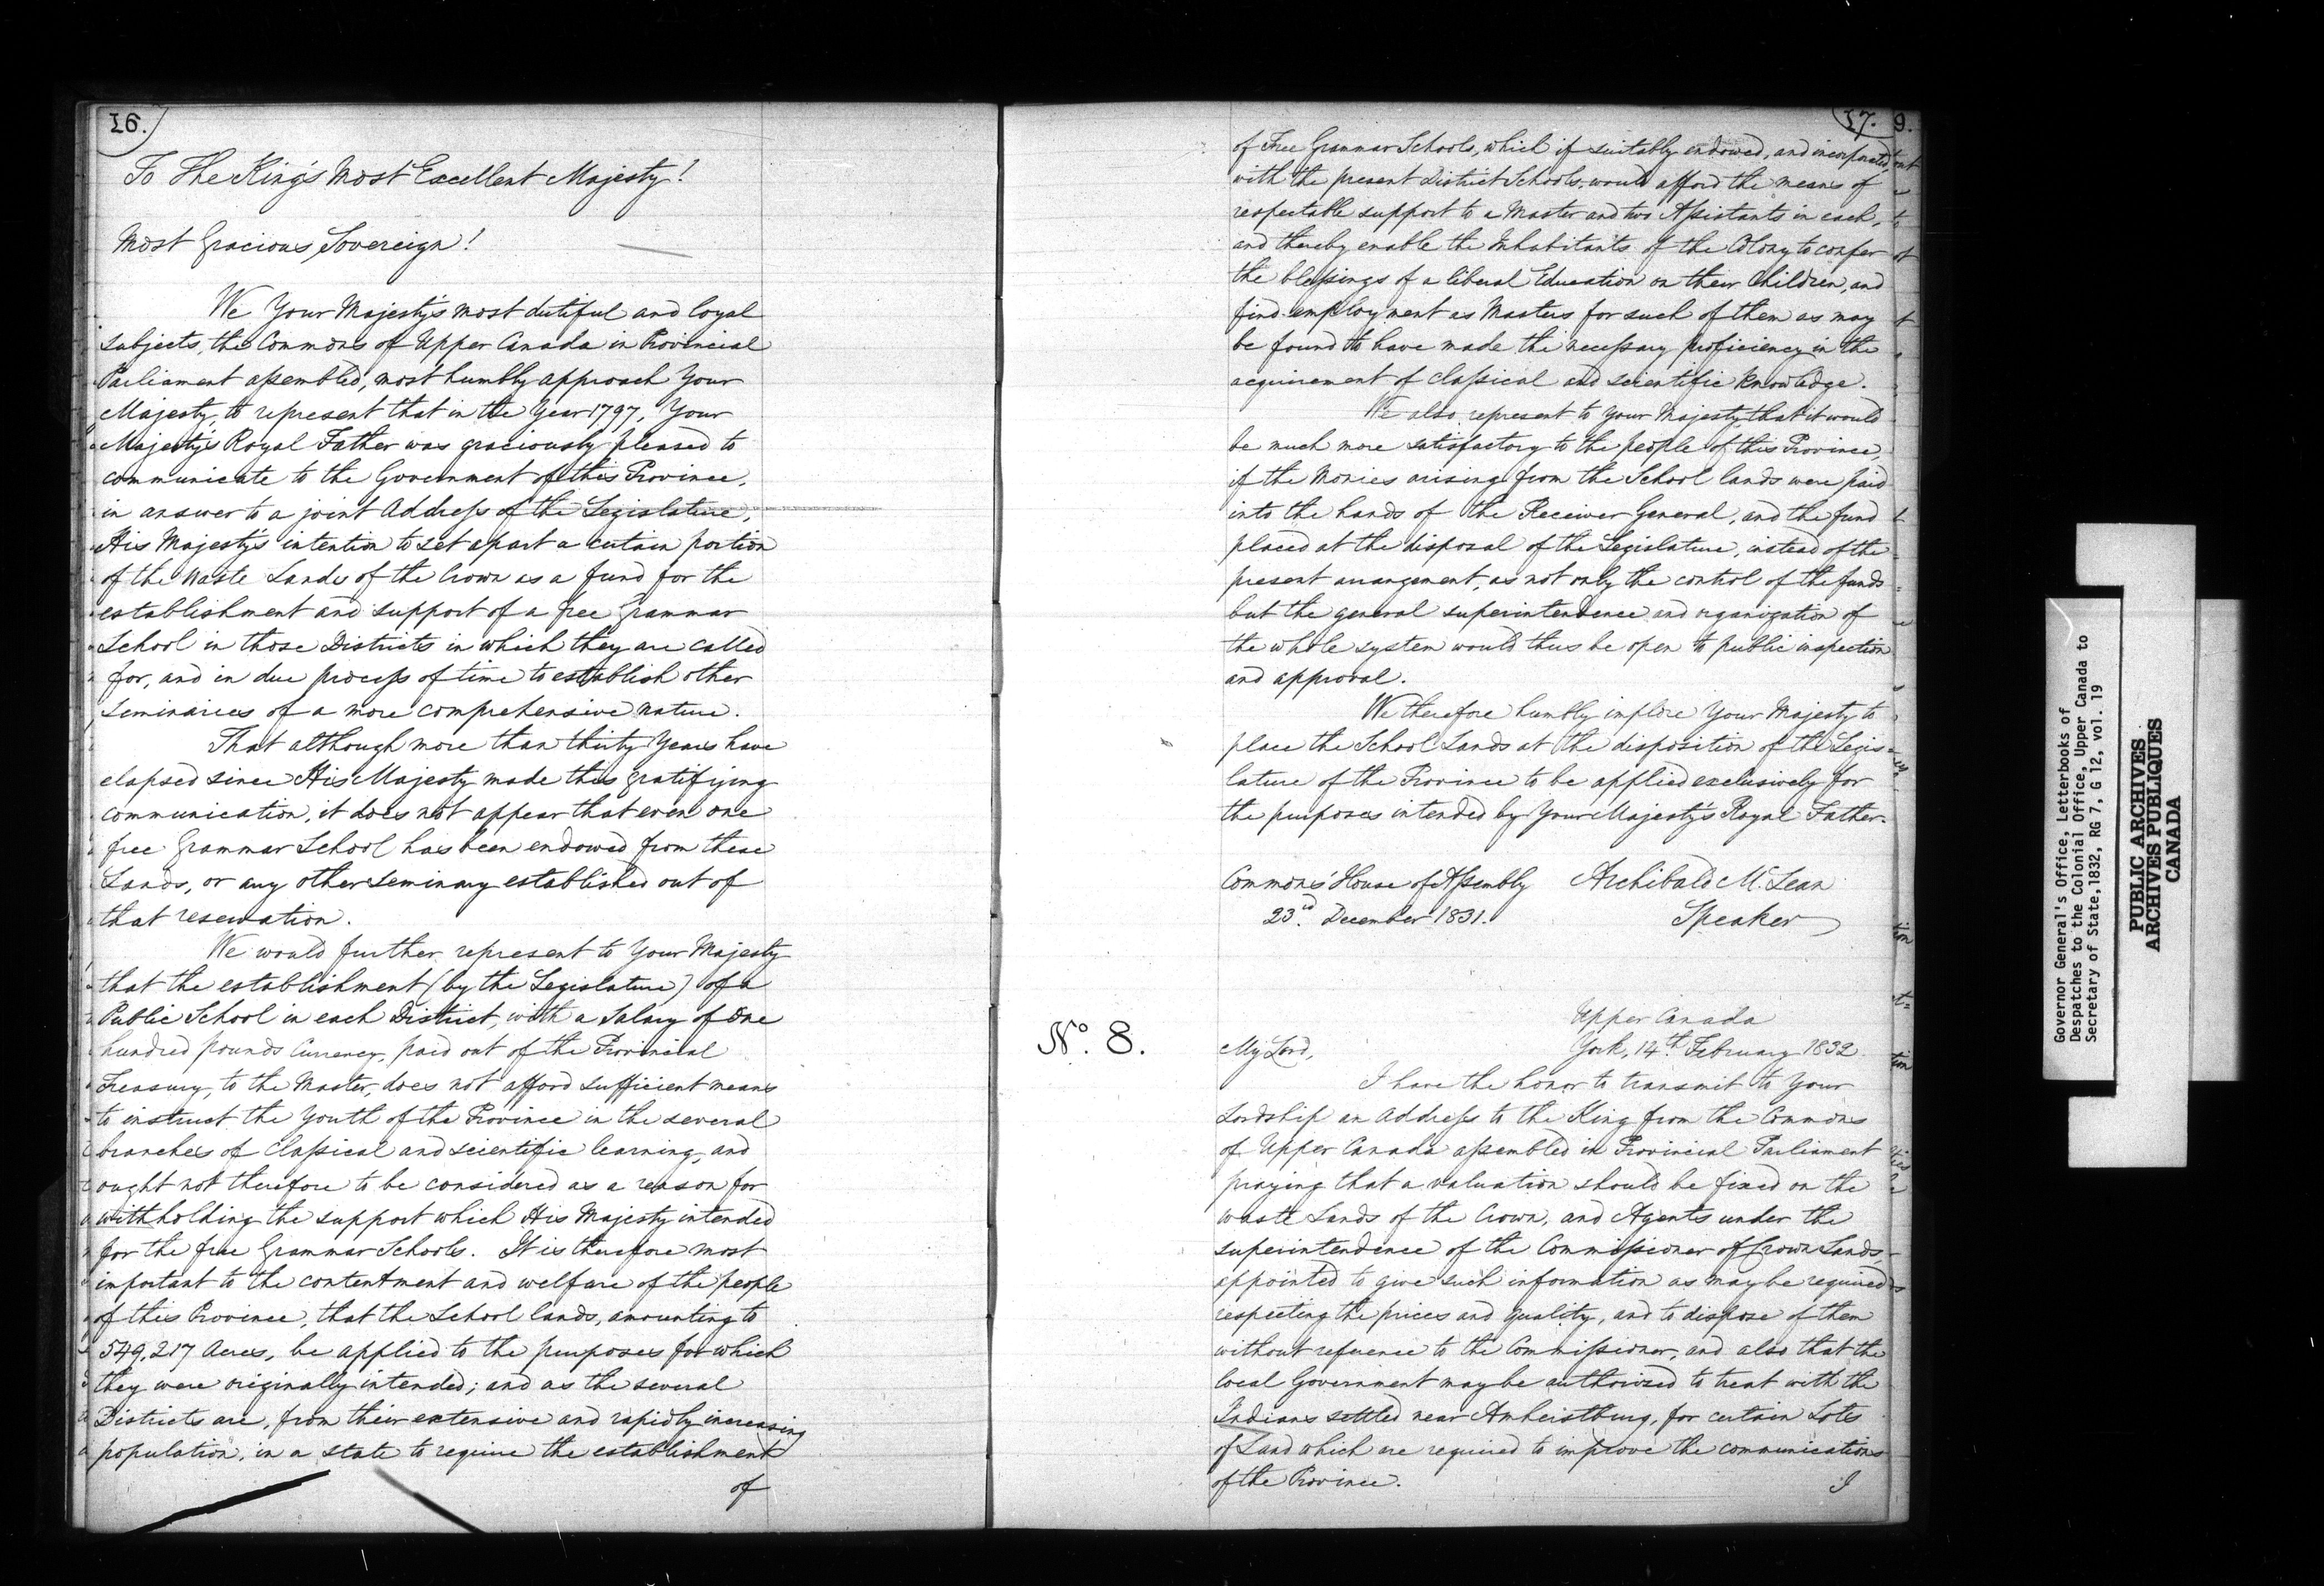 16.
To The King's Most Excellent Majesty!
Most Gracious Sovereign!
We Your Majesty's most dutiful and loyal
subjects, the Commons of Upper Canada in Provincial
Parliament assembled, most humbly approach Your
Majesty, to represent that in the Year 1797, Your
Majesty's Royal Father was graciously pleased to
communicate to the Government of this Province,
in answer to a joint Address of the Legislature,
His Majesty's intention to set apart a certain portion
of the Waste Lands of the Crown as a fund for the
establishment and support of a free Grammar
School in those Districts in which they are called
for, and in due process of time to establish other
Seminaries of a more comprehensive nature.
That although more than thirty Years have
elapsed since His Majesty made this gratifying
communication, it does not appear that even one
free Grammar School has been endowed from these
Lands, or any other Seminary established out of
that reservation.
We would further represent to Your Majesty
that the establishment (by the Legislature) of a
Public School in each District, with a Salary of One
hundred pounds Currency, paid out of the Provincial
Treasury, to the Master, does not afford sufficient means
to instruct the Youth of the Province in the several
branches of Classical and scientific learning, and
ought not therefore to be considered as a reason for
withholding the support which His Majesty intended
for the free Grammar Schools. It is therefore most
important to the contentment and welfare of the people
of this Province, that the School lands, amounting to
549,217 Acres, be applied to the purposes for which
they were originally intended; and as the several
Districts are, from their extensive and rapidly increasing
population, in a state to require the establishment
of
17. 9.
of Free Grammar Schools, which if suitably endowed, and incorporated
with the present District Schools, would afford the means of
respectable support to a Master and two Assistants in each,
and thereby enable the Inhabitants of the Colony to confer
the blessings of a liberal Education on their Children, and
find employment as Masters for such of them as may
be found to have made the necessary proficiency in the
acquirement of classical and scientific knowledge.
We also represent to your Majesty, that it would
be much more satisfactory to the people of this Province,
if the Monies arising from the School lands were paid
into the hands of the Receiver General, and the fund
placed at the disposal of the Legislature, instead of the
present arrangement, as not only the control of the funds
but the general superintendence and organization of
the whole system would thus be open to public inspection
and approval.
We therefore humbly implore Your Majesty to
place the School Lands at the disposition of the Legis-
lature of the Province to be applied exclusively for
the purposes intended by Your Majesty's Royal Father.
Commons' House of Assembly Archibald McLean
23rd December 1831. Speaker
Upper Canada
No. 8. My Lord, York, 14th February 1832
I have the honor to transmit to Your
Lordship an Address to the King from the Commons
of Upper Canada assembled in Provincial Parliament
praying that a valuation should be fixed on the
waste Lands of the Crown, and Agents under the
superintendence of the Commissioner of Crown Lands,
appointed to give such information as may be required
respecting the prices and quality, and to dispose of them
without reference to the Commissioner, and also that the
local Government may be authorized to treat with the
Indians settled near Amherstburg, for certain Lots
of Land which are required to improve the communications
of the Province.
I
Governor General's Office, Letterbooks of
Despatches to the Colonial Office, Upper Canada to
Secretary of State,1832, RG 7, G 12, vol. 19
PUBLIC ARCHIVES
ARCHIVES PUBLIQUES
CANADA